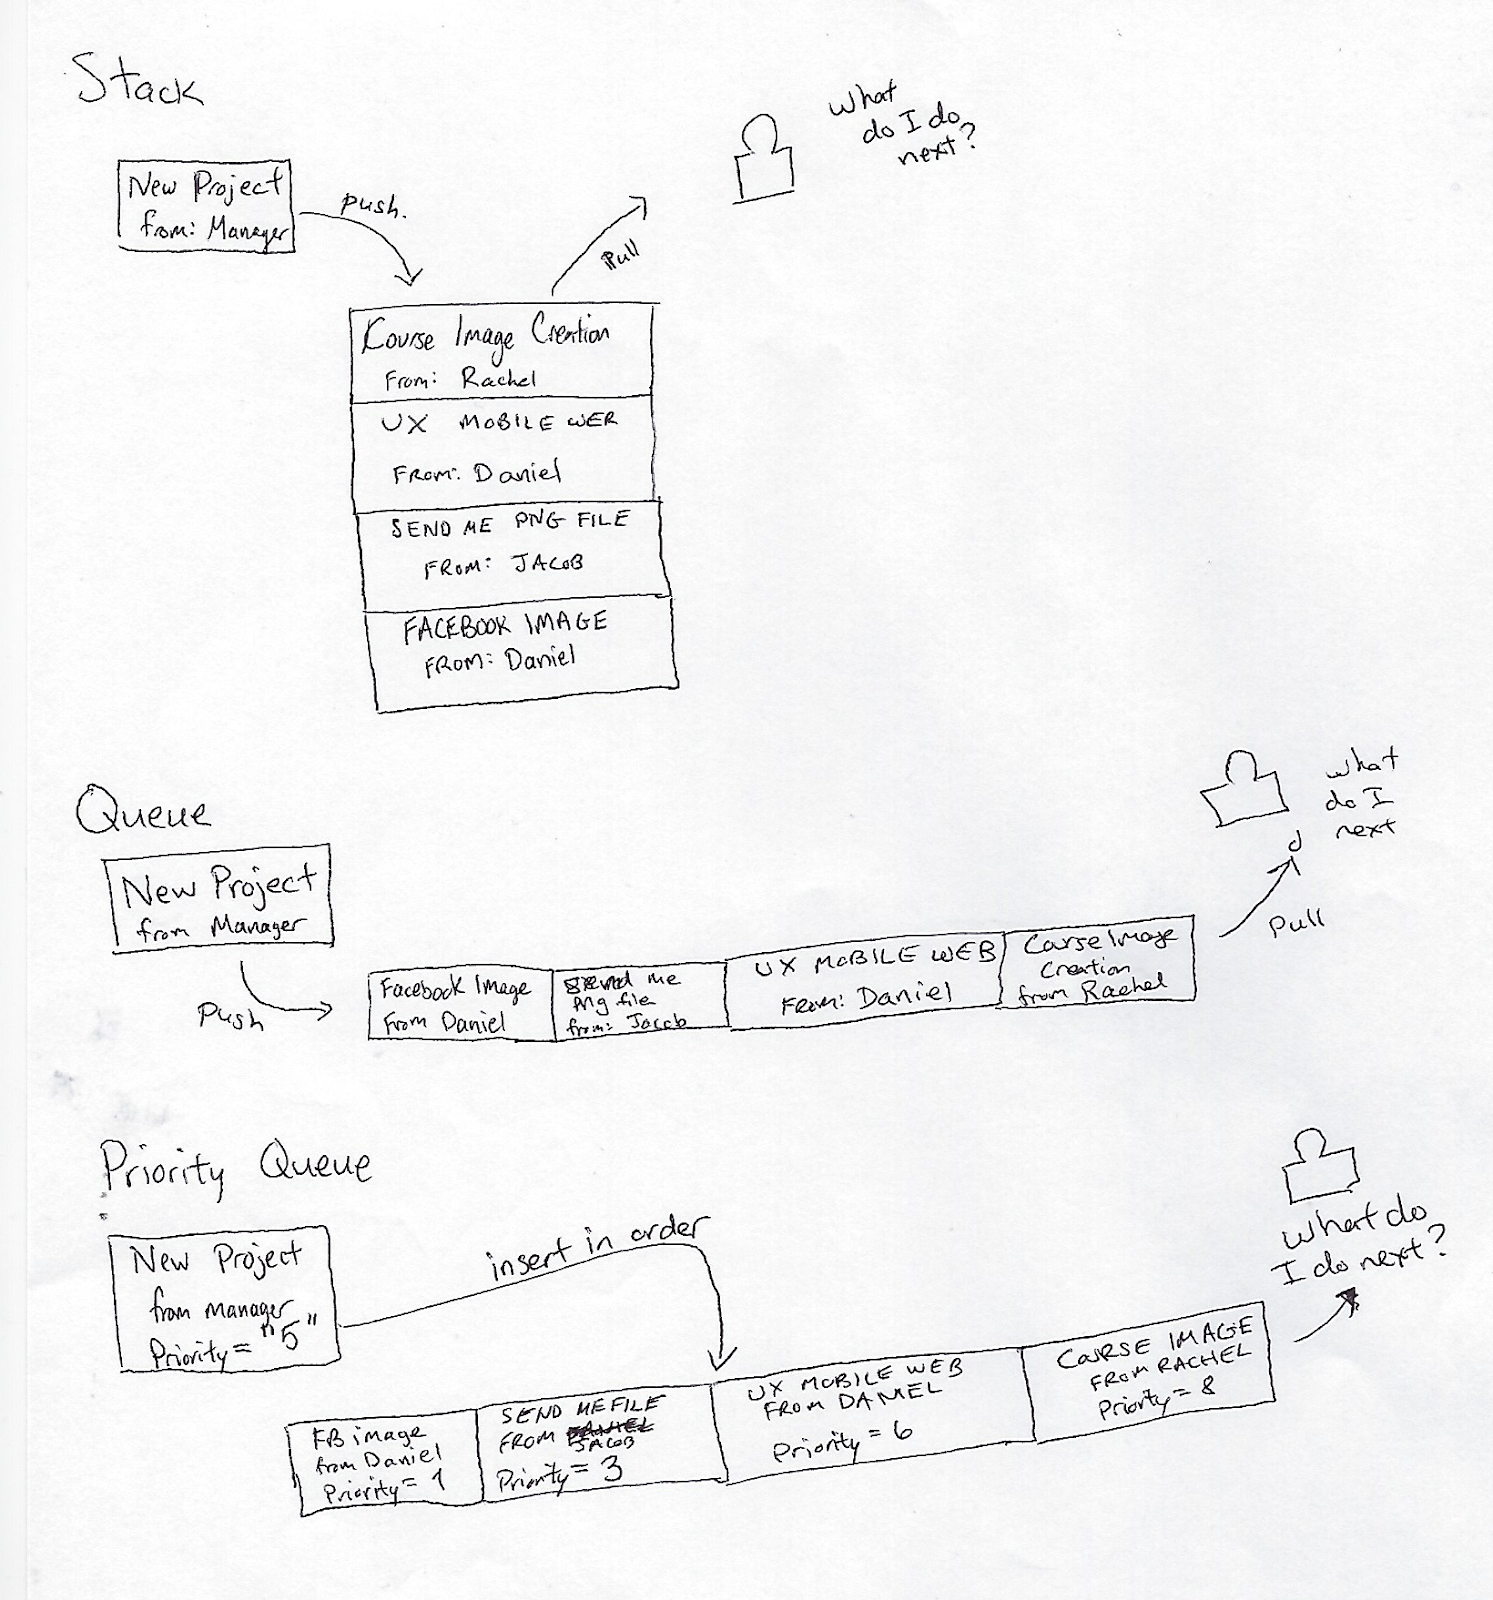 Stack
What
do I do
next?
New Project
from: Manager
Push.
Pull
Course Image Creation
From: Rachel
UX MOBILE WEB
FROM: Daniel
SEND ME PNG FILE
FROM: JACOB
FACEBOOK IMAGE
FROM: Daniel
Queue
What
do I
next
New Project
from Manager
Push
Pull
Facebook Image
From Daniel
Send me
Png file
from: Jacob
UX MOBILE WEB
FROM: Daniel
Course Image
Creation
from Rachel
Priority Queue
New Project
from manager
Priority = "5"
insert in order
What do
I do next?
FB image
from Daniel
Priority = 1
SEND ME FILE
FROM DANIEL
JACOB
Priority = 3
UX MOBILE WEB
FROM DANIEL
Priority = 6
COURSE IMAGE
FROM RACHEL
Priority = 8